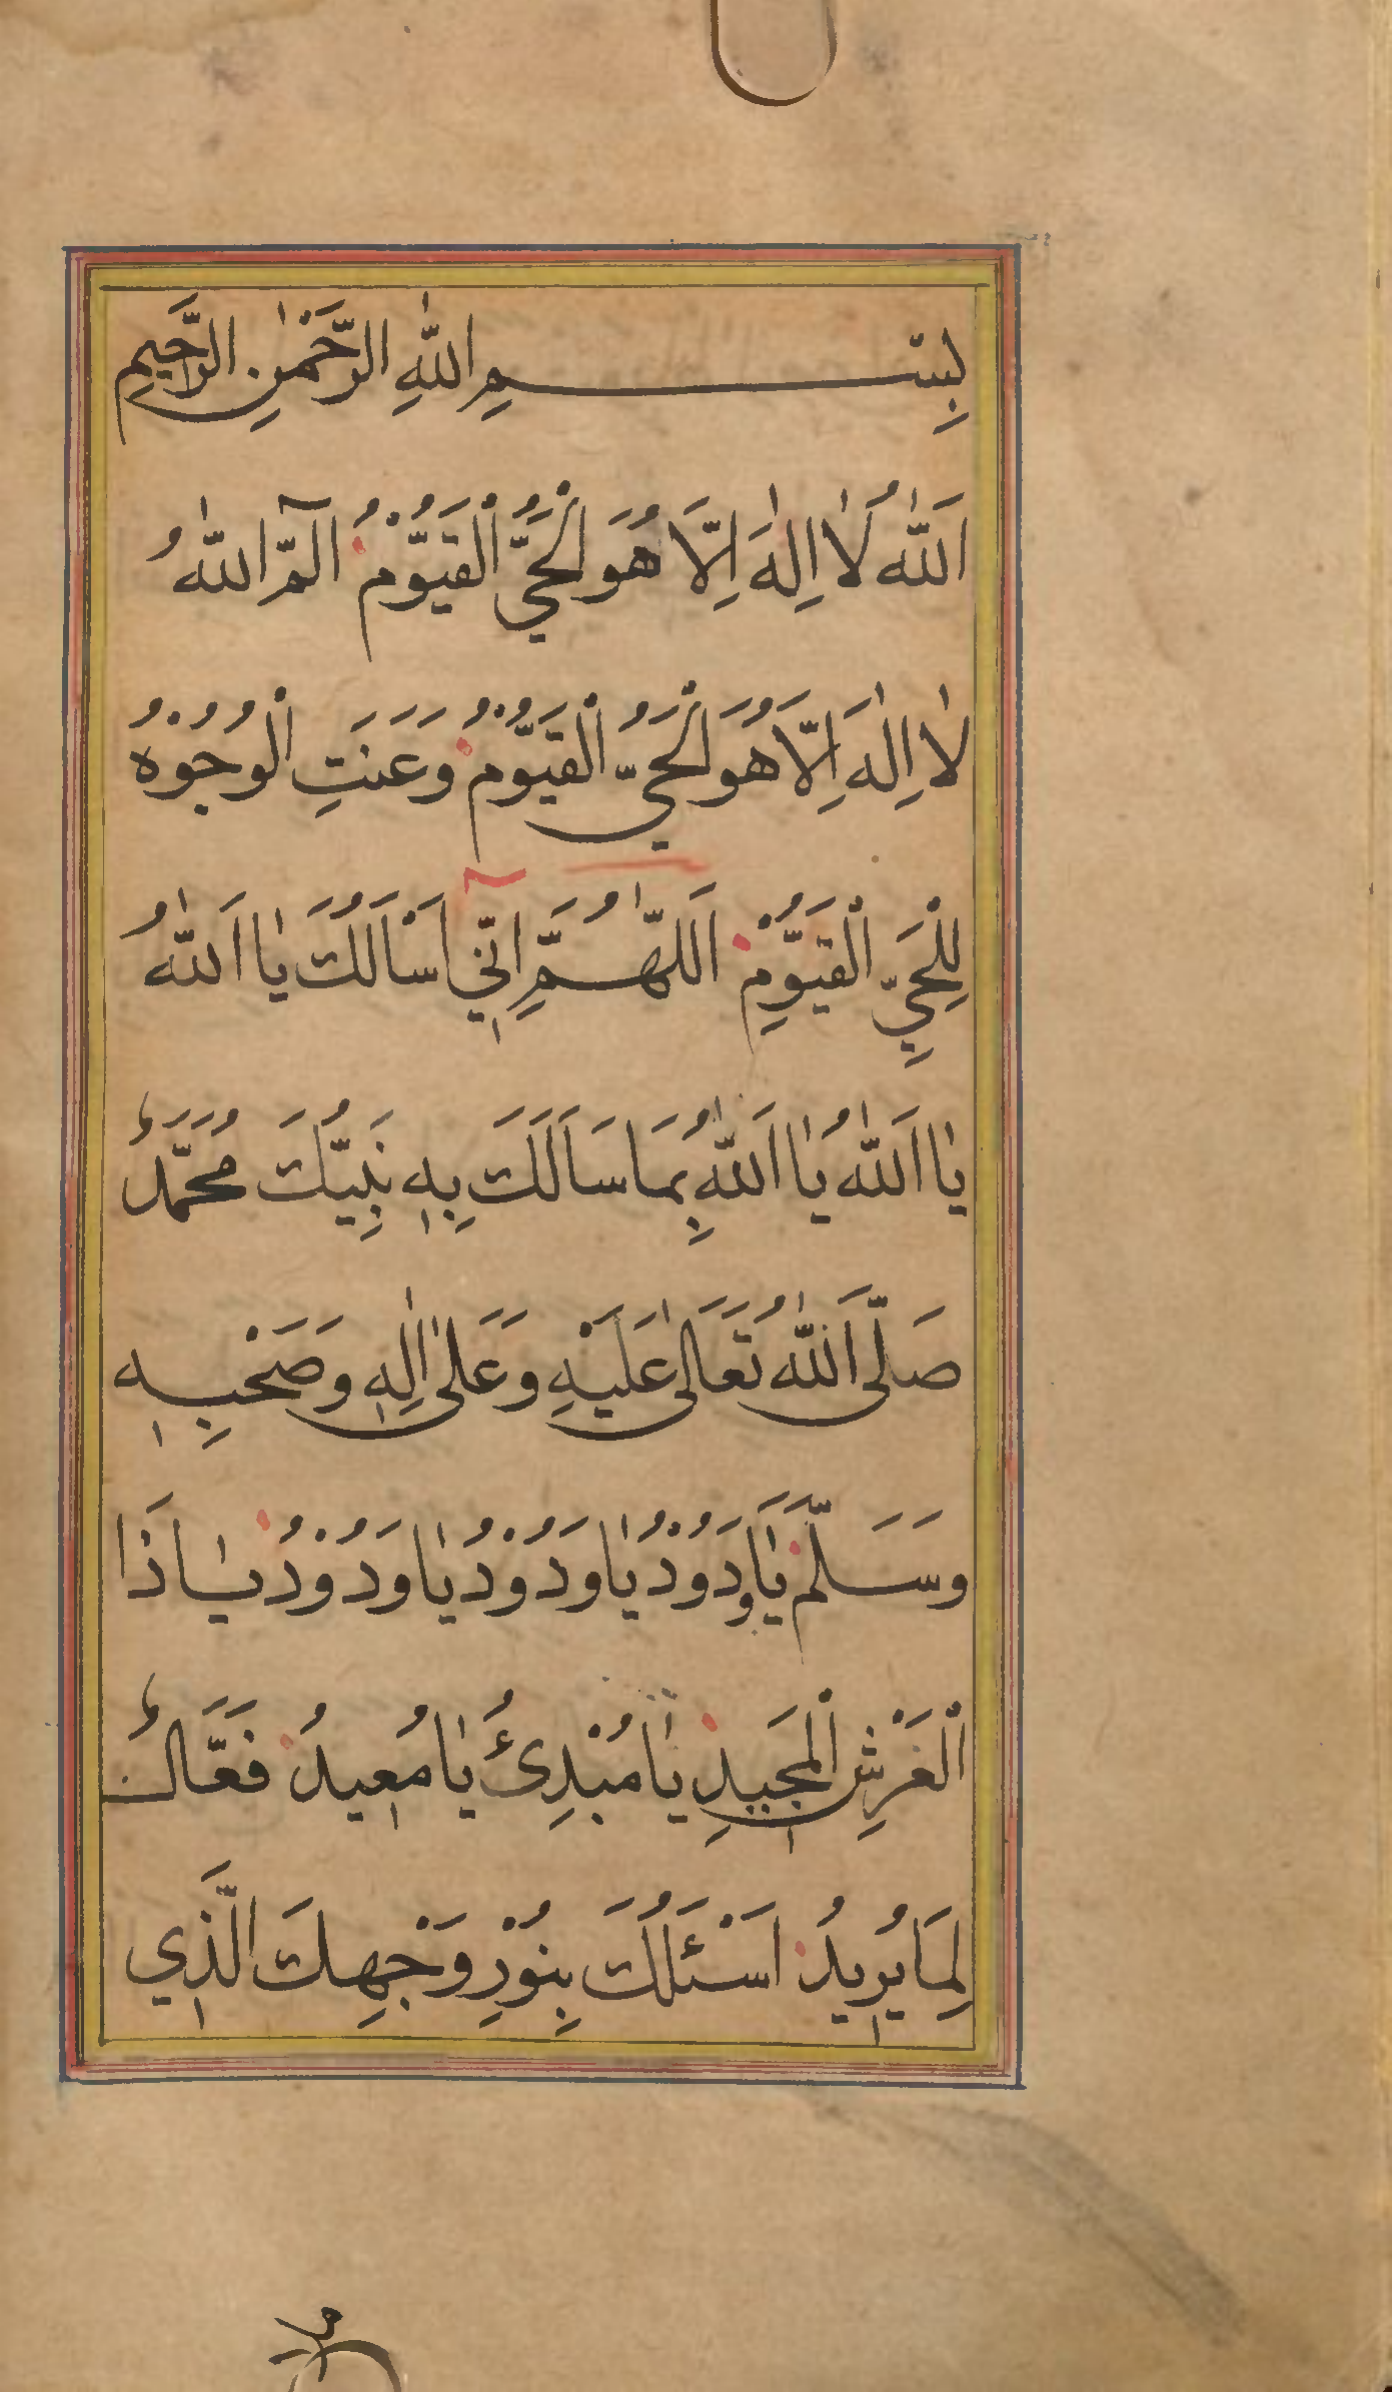 بِسْمِ اللّٰهِ الرَّحْمٰنِ الرَّحِيمِ
اَللّٰهُ لَا اِلٰهَ اِلَّا هُوَ الْحَيُّ الْقَيُّوْمُ الٓمّ اللّٰهُ
لَا اِلٰهَ اِلَّا هُوَ الْحَيُّ الْقَيُّوْمُ وَعَنَتِ الْوُجُوْهُ
لِلْحَيِّ الْقَيُّوْمِ اَللّٰهُمَّ اِنّٖي اَسْاَلُكَ يَا اَللّٰهُ
يَا اَللّٰهُ يَا اَللّٰهُ بِمَا سَاَلَكَ بِهٖ نَبِيُّكَ مُحَمَّدٌ
صَلَّى اللّٰهُ تَعَالٰى عَلَيْهِ وَعَلٰى اٰلِهٖ وَصَحْبِهٖ
وَسَلَّمَ يَا وَدُوْدُ يَا وَدُوْدُ يَا وَدُوْدُ يَا ذَا
الْعَرْشِ الْمَجٖيدِ يَا مُبْدِئُ يَا مُعٖيدُ فَعَّالٌ
لِمَا يُرٖيدُ اَسْئَلُكَ بِنُوْرِ وَجْهِكَ الَّذٖي